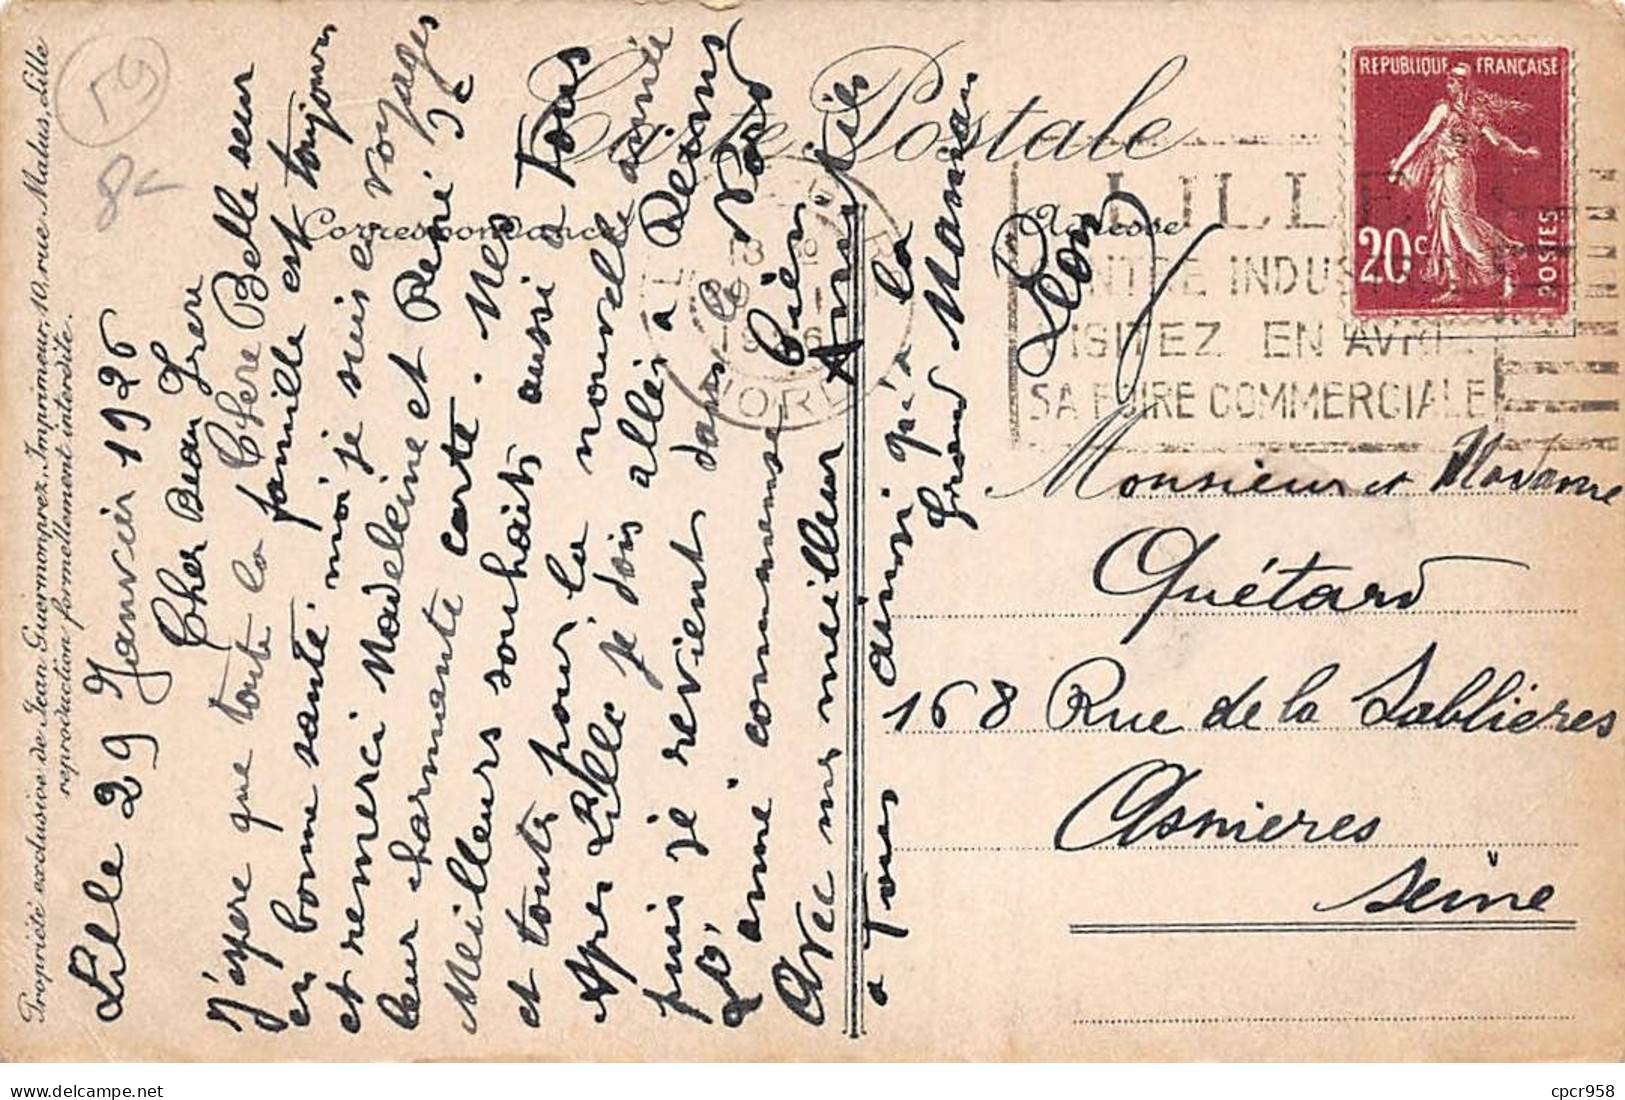 Propriété exclusive de Jean Guermonprez, Imprimeur, 10, rue Malus, Lille
reproduction formellement interdite.
59
8-
Lille 29 Janvier 1926
Cher Beau Frere
Chere Belle seur
J'espere que toute la famille est toujours
en bonne santé. moi je suis en voyages
et remerci Madeleine et René de
leur charmante carte. Mes
Meilleurs souhaits aussi a Tous
et toute pour la nouvelle année
Apres Lille je dois aller à Reims
puis je revient dans le Nord
L'anné commense bien
Avec mes meilleur Amitiés
a Tous ainsi qu'a la
Grand Maman
Léon
Carte Postale
Correspondance
Adresse
REPUBLIQUE FRANÇAISE
20c
POSTES
LILLE
NORD
LILLE
CENTRE INDUSTRIEL
VISITEZ EN AVRIL
SA FOIRE COMMERCIALE
Monsieur et Madame
Quétard
168 Rue de la Sablieres
Asnieres
Seine
cpcr958